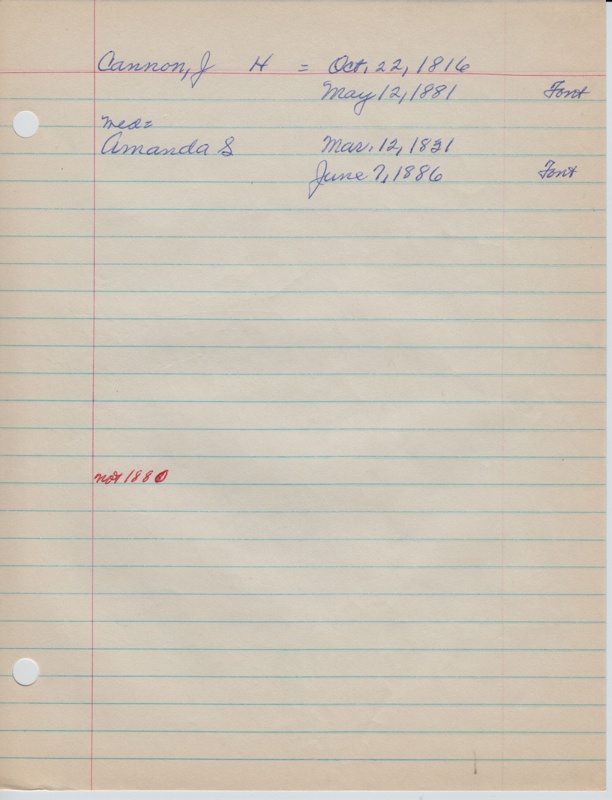 Cannon, J H = Oct. 22, 1816
May 12, 1881 Font
med=
Amanda S Mar. 12, 1831
June 7, 1886 Font
not 1880